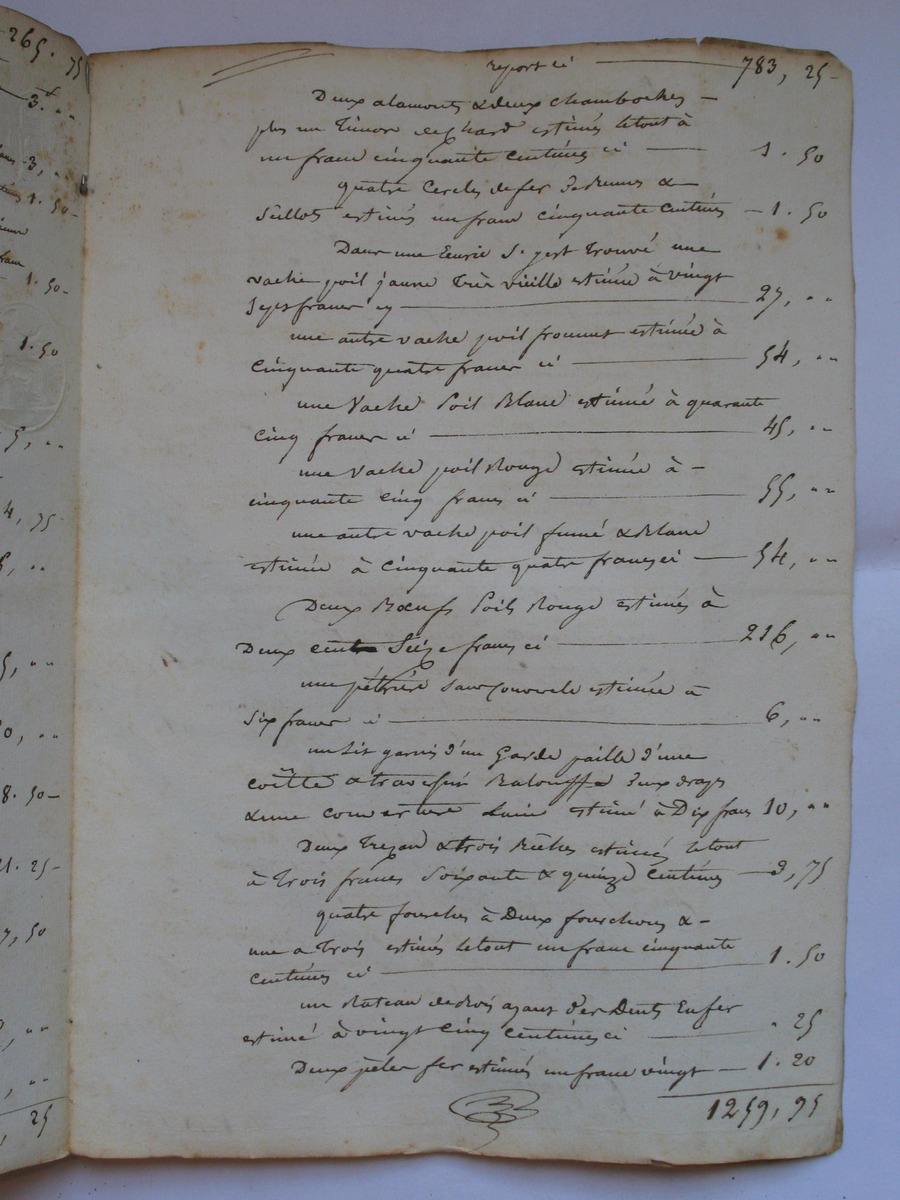 265. 75
3. "
3, "
1. 50
1. 50
1. 50
5, "
4, 75
8. 50
21. 25
7, 50
25
report ci 783, 25
Deux alamonts & deux chamboches
plus un timon de chard estimés le tout à
un franc cinquante centimes ci 1. 50
quatre Cercles de fer &
Seillot estimés un franc cinquante centimes 1. 50
Dans une Eurie S'y est trouvé une
vache poil jaune très vieille estimée à vingt
Sept francs cy 27, "
une autre vache poil froment estimée à
Cinquante quatre francs ci 54, "
une Vache Poil Blanc estimée à quarante
Cinq francs ci 45, "
une vache poil Rouge estimée à
cinquante cinq francs ci 55, "
une autre vache poil fumé & Blanc
estimée à Cinquante quatre francs ci 54, "
Deux Bœufs Poils Rouge estimés à
Deux cent Seize francs ci 216, "
une pétrière sans Couvercle estimée à
Six francs ci 6, "
un Lit garnis d'un Garde paille d'une
coëtte & traversin Balouffe Deux draps
& une couverture laine estimé à Dix francs 10, "
Deux & trois estimés le tout
à Trois francs Soixante & quinze Centimes 3, 75
quatre fourches à Deux fourchons &
une a trois estimés le tout un franc cinquante
centimes ci 1. 50
un Rateau de Bois ayant des Dents En fer
estimé à vingt Cinq Centimes ci " 25
Deux pèles fer estimés un franc vingt 1. 20
1259, 95